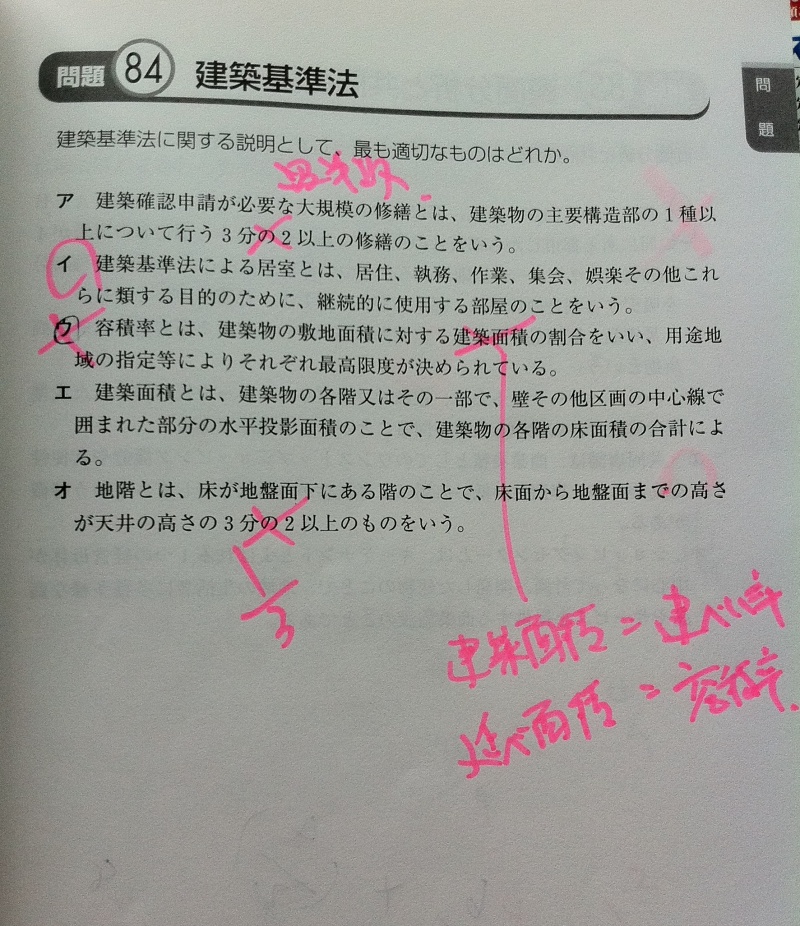 問題 84 建築基準法
問題
建築基準法に関する説明として、最も適切なものはどれか。
ア 建築確認申請が必要な大規模の修繕とは、建築物の主要構造部の1種以
上について行う3分の2以上の修繕のことをいう。
イ 建築基準法による居室とは、居住、執務、作業、集会、娯楽その他これ
らに類する目的のために、継続的に使用する部屋のことをいう。
ウ 容積率とは、建築物の敷地面積に対する建築面積の割合をいい、用途地
域の指定等によりそれぞれ最高限度が決められている。
エ 建築面積とは、建築物の各階又はその一部で、壁その他区画の中心線で
囲まれた部分の水平投影面積のことで、建築物の各階の床面積の合計によ
る。
オ 地階とは、床が地盤面下にある階のことで、床面から地盤面までの高さ
が天井の高さの3分の2以上のものをいう。
1
3
建築面積=建ぺい率
延べ面積=容積率.